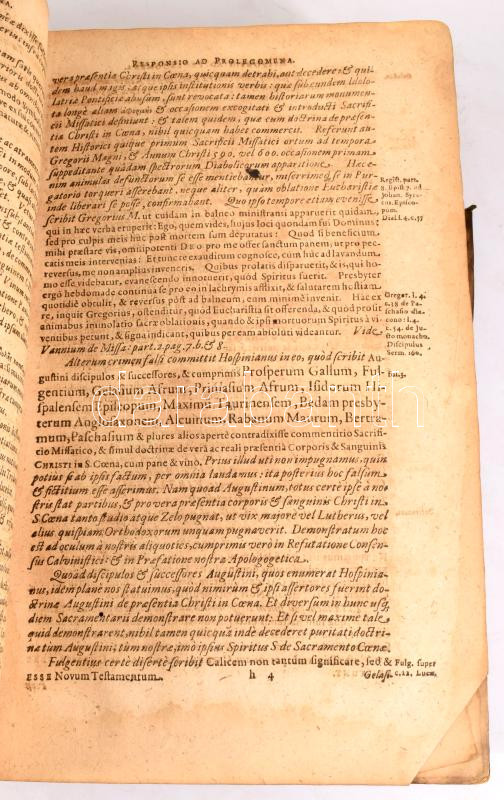 RESPONSIO AD PROLEGOMENA.
vera præsentia Christi in Cœna, quicquam detrahi, aut decedere; & qui-
dem haud magis: atque ipsis institutionis verbis: quæ subeundem Idolo-
latriæ Pontificiæ abusum, sunt revocata: tamen historiarum monumen-
ta longe aliam & occasionem excogitati & introducti Sacrifi-
cii Missatici definiunt; & talem quidem, quæ cum doctrina de præsen-
tia Christi in Cœna, nihil quicquam habet commercii. Referunt au-
tem Historici quique primum Sacrificii Missatici ortum ad tempora
Gregorii Magni; & Annum Christi 590. vel 600. occasionem primam
suppeditante quadam spectrorum Diabolicorum apparitione. Hæ e-
nim animulas defunctorum se esse mentiebantur, miserrimeq́; se in Pur-
gatorio torqueri asserebant, neque aliter, quàm oblatione Eucharistiæ
inde liberari se posse, confirmabant. Quo ipso tempore etiam evenisse
scribit Gregorius M. ut cuidam in balneo ministranti apparuerit quidam,
qui in hæc verba eruperit: Ego, quem vides, hujus loci quondam fui Dominus:
sed pro culpis meis huc post mortem sum deputatus: Quod si beneficium
mihi præstare vis, omnipotenti DEO pro me offer sanctum panem, ut pro pec-
catis meis intervenias: Et tunc te exauditum cognosce, cum huc ad lavandum
reversus, me non amplius inveneris. Quibus prolatis disparuit, & is, qui ho-
mo esse videbatur, evanescendo innotuerit, quod Spiritus fuerit. Presbyter
ergò hebdomade continua se pro eo in lachrymis afflixit, & salutarem hostiam
quotidiè obtulit, & reversus pòst ad balneum, eum minimè invenit. Hac ex
re, inquit Gregorius, ostenditur, quòd Eucharistia sit offerenda, & quòd prosit
animabus inmolatio sacræ oblationis, quando & ipsi mortuorum Spiritus à vi-
ventibus petunt, & signa indicant, quibus per eam absoluti videantur. Vide
Vannium de Missa: part. 2. pag. 7. b. & 8.
Alterum crimen falsi committit Hospinianus in eo, quod scribit Au-
gustini discipulos & successores, & comprimis Prosperum Gallum, Ful-
gentium, Gelasium Afrum, Primasium Afrum, Isidorum Hi-
spalensem Episcopum, Maximū Taurinensem, Bedam presby-
terum Angłosaxonem, Alcuinum, Rabanum Maurum, Bertra-
mum, Paschasium & plures alios aperte contradixisse commentitio Sacrifi-
cio Missatico, & simul doctrinæ de vera ac reali præsentia Corporis & Sanguinis
CHRISTI in S. Cœna, cum pane & vinò. Prius illud uti non impugnamus, quin
potius se ab ipsis factum, per omnia laudamus: ita posterius hoc falsum
& fictitium esse asserimus. Nam quoad Augustinum, totus certè ipse à no-
stris stat partibus, & pro vera præsentia corporis & sanguinis Christi in
S. Cœna tanto studio atque Zelo pugnat, ut vix majore vel Lutherus, vel
alius quispiam Orthodoxorum unquam pugnaverit. Demonstratum hoc
est ad oculum à nostris aliquoties, cumprimis verò in Refutatione Consen-
sus Calvinistici: & in Præfatione nostra Apologetica.
Quoad discipulos & successores Augustini, quos enumerat Hospinia-
nus, idem planè nos statuimus, quod nimirum & ipsi assertores fuerint do-
ctrinæ Augustini de præsentia Christi in Cœna. Et diversum in hunc usq́;
diem Sacramentarii demonstrare non potuerunt: Et si vel maximè tale
quid demonstrarent, nihil tamen quicquā inde decederet puritati doctri-
næ tum Augustini, tùm nostræ, imò ipsius Spiritus S. de Sacramento Cœnæ.
Fulgentius certè disertè scribit Calicem non tantùm significare, sed &
ESSE Novum Testamentum. h 4 Gelasi-
Regist. part.
2. Epist. 7. ad
Johan. Syra-
cus. Episco-
pum.
Dial. l. 4. c. 55
Gregor. l. 4.
c. 18 de Pa-
schasio dia-
cono: l. 4.
c. 54. de Ju-
sto monacho.
Discipulus
Serm. 160.
Ful. 3.
Fulg. super
c. 22. Lucæ.
darabanth